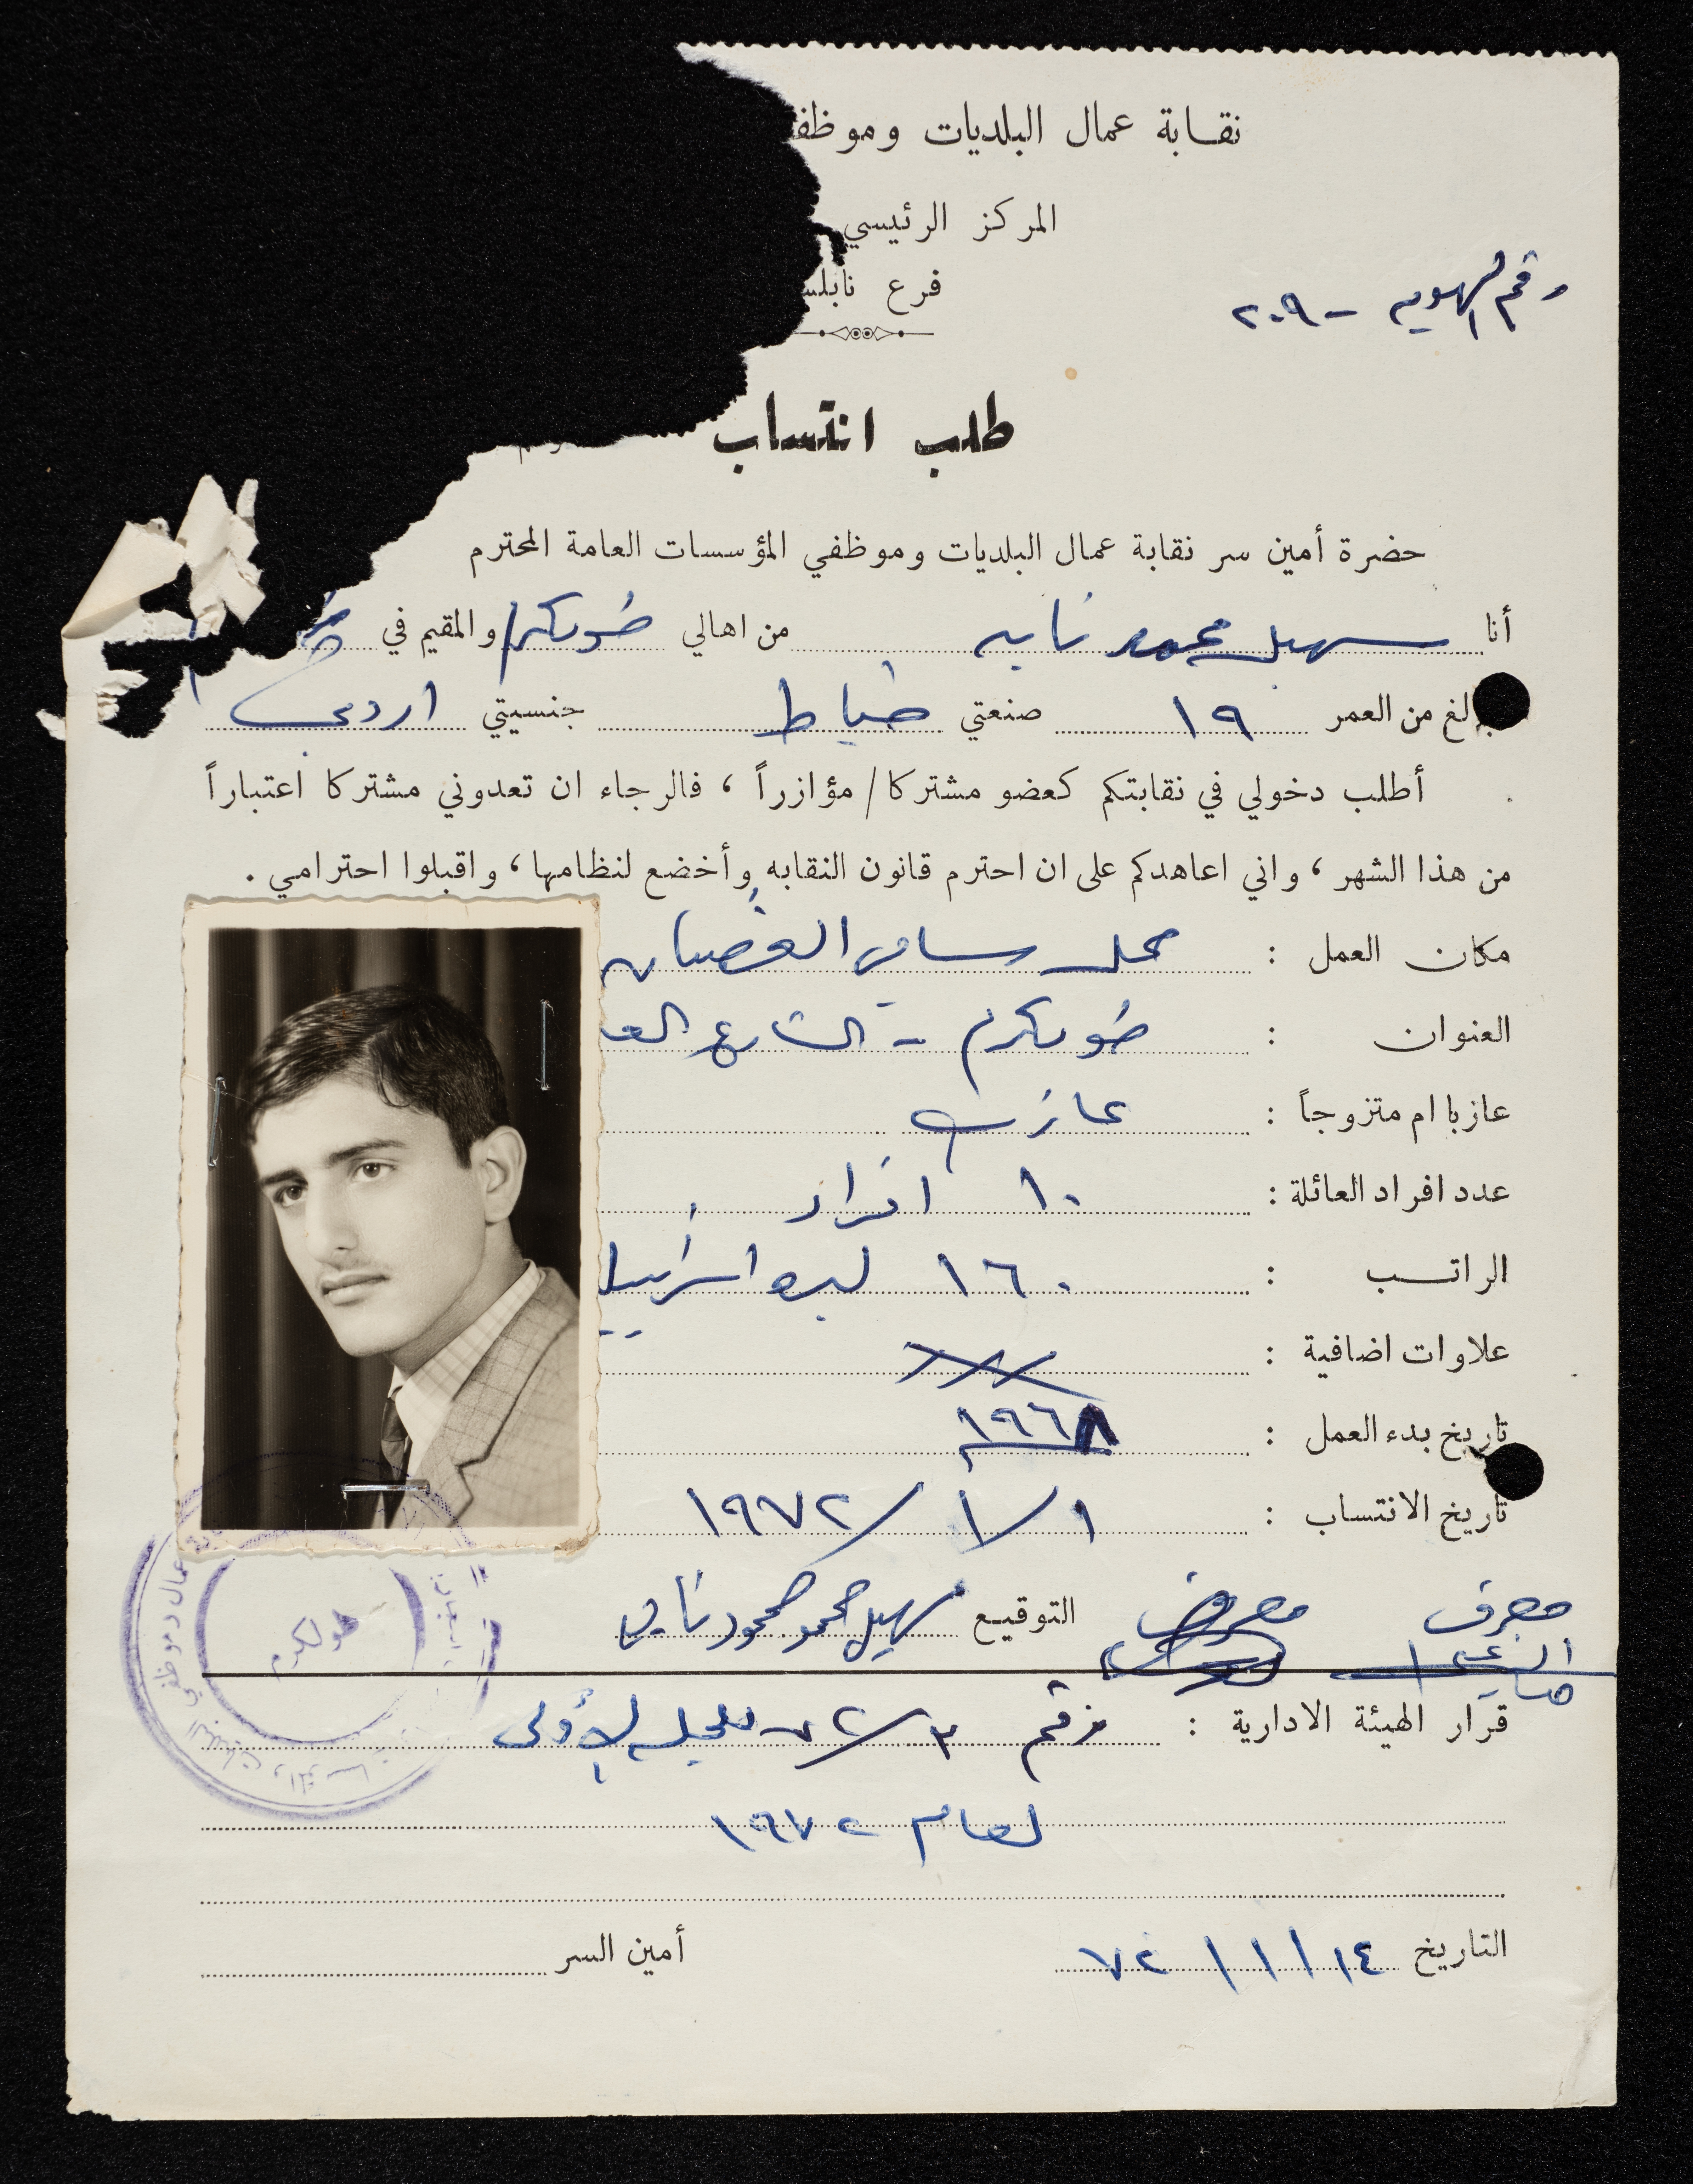 نقابة عمال البلديات وموظف
المركز الرئيسي
فرع نابلس
رقم الهويه - ٢٠٩
طلب انتساب
حضرة أمين سر نقابة عمال البلديات وموظفي المؤسسات العامة المحترم
أنا سهيل محمد من اهالي طولكرم والمقيم في
بالغ من العمر ١٩ صنعتي خياط جنسيتي اردني
أطلب دخولي في نقابتكم كعضو مشتركا / مؤازراً ، فالرجاء ان تعدوني مشتركا اعتباراً
من هذا الشهر ، واني اعاهدكم على ان احترم قانون النقابه وأخضع لنظامها ، واقبلوا احترامي .
مكان العمل : محل سامي
العنوان : طولكرم - الشارع الع
عازبا ام متزوجاً : عازب
عدد افراد العائلة : ١٠ افراد
الراتب : ١٦٠ ليره اسرائيلي
علاوات اضافية :
تاريخ بدء العمل : ١٩٦٨
تاريخ الانتساب : ١ / ١ / ١٩٧٢
التوقيع سهيل محمد محمود
قرار الهيئة الادارية : رقم ٣ / ٧٢ للجلسه الاولى
لعام ١٩٧٢
التاريخ ١٤ / ١ / ٧٢ أمين السر
طولكرم